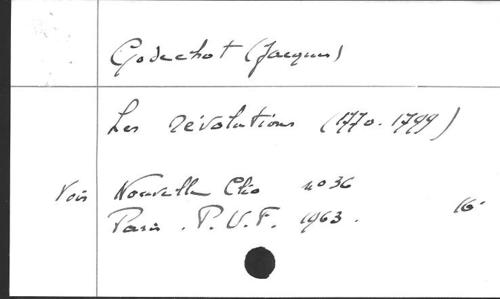 Godechot (Jacques)
Les révolutions (1770-1799)
Voir Nouvelle Clio n° 36
Paris. P.U.F. 1963. 16°